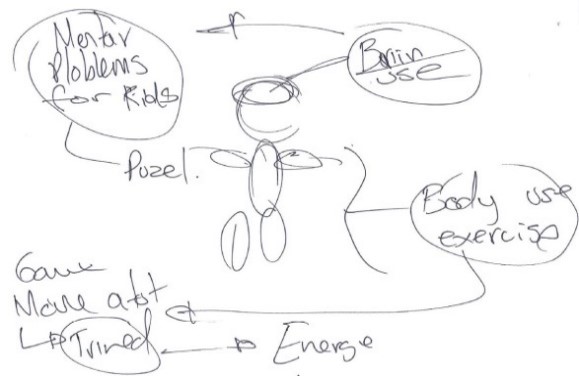 Mentar
Ploblems
for Kids
Brain
use
Puzel.
Body use
exercise
Game
Move a lot
Trined
Energe